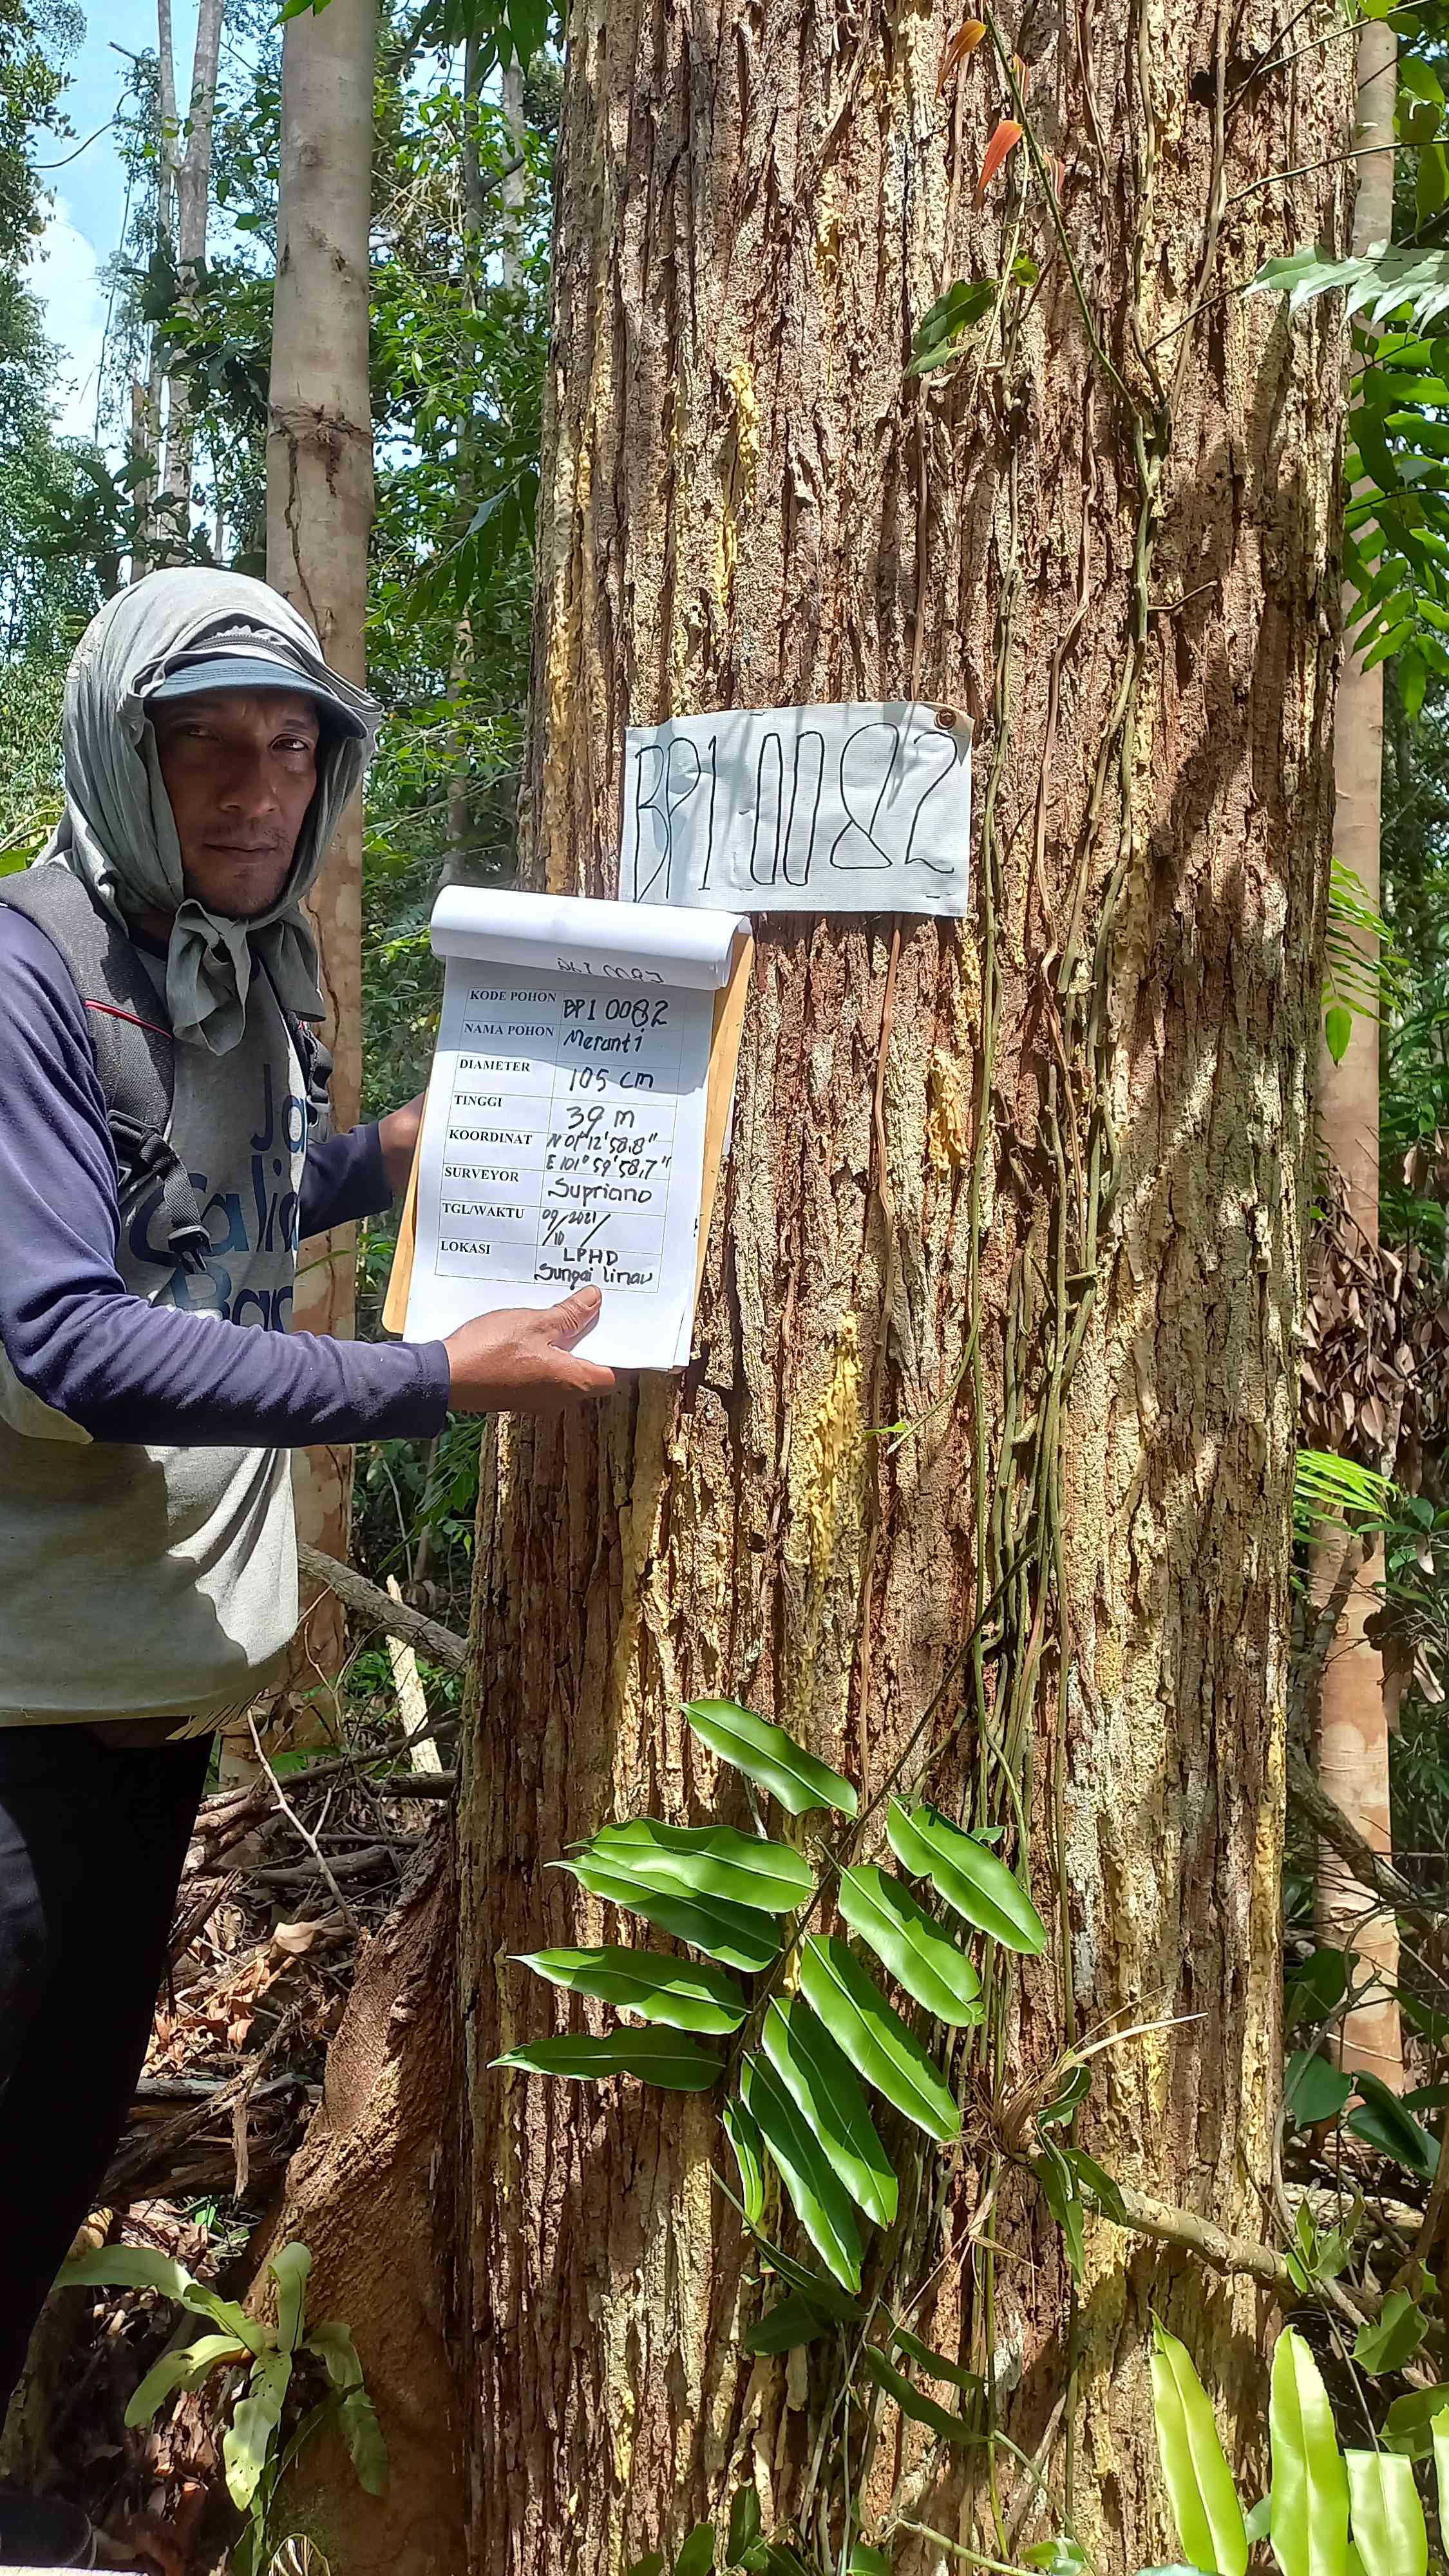 BP1 0082
KODE POHON BP1 0082
NAMA POHON Meranti
DIAMETER 105 cm
TINGGI 39 m
KOORDINAT N 01°12'58.8"
E 101°59'58.7"
SURVEYOR Supriano
TGL/WAKTU 09/10/2021/
LOKASI LPHD
Sungai linau
Ja
Calid